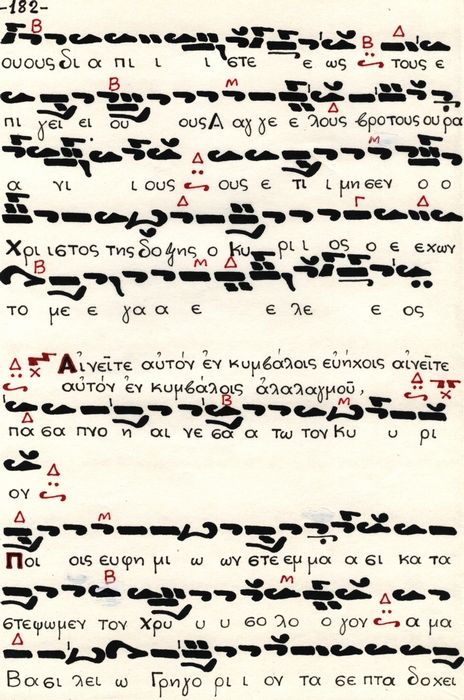 -182-
ουους δι α πι ι ι στε ε ως τους ε
πι γει ει ου ους Α αγ γε ε λους βρο τους ου ρα
α νι ι ους ους ε τι ι μη σεν ο ο
Χρι ιστος της δο ξης ο κυ ρι ι ος ο ε ε χων
το με ε γα α ε ε λε ε ος
Αἰνεῖτε αὐτόν ἐν κυμβάλοις εὐήχοις αἰνεῖτε
αὐτόν ἐν κυμβάλοις ἀλαλαγμοῦ,
πα σα πνο η αι νε σα α τω τον Κυ υ ρι
ον
Ποι οις ευ φη μι ω ων στε εμ μα α σι κα τα
στε ψω μεν τον χρυ υ υ σο λο ο γον α μα
Βα σι λει ω Γρη γο ρι ι ον τα σε πτα δο χει